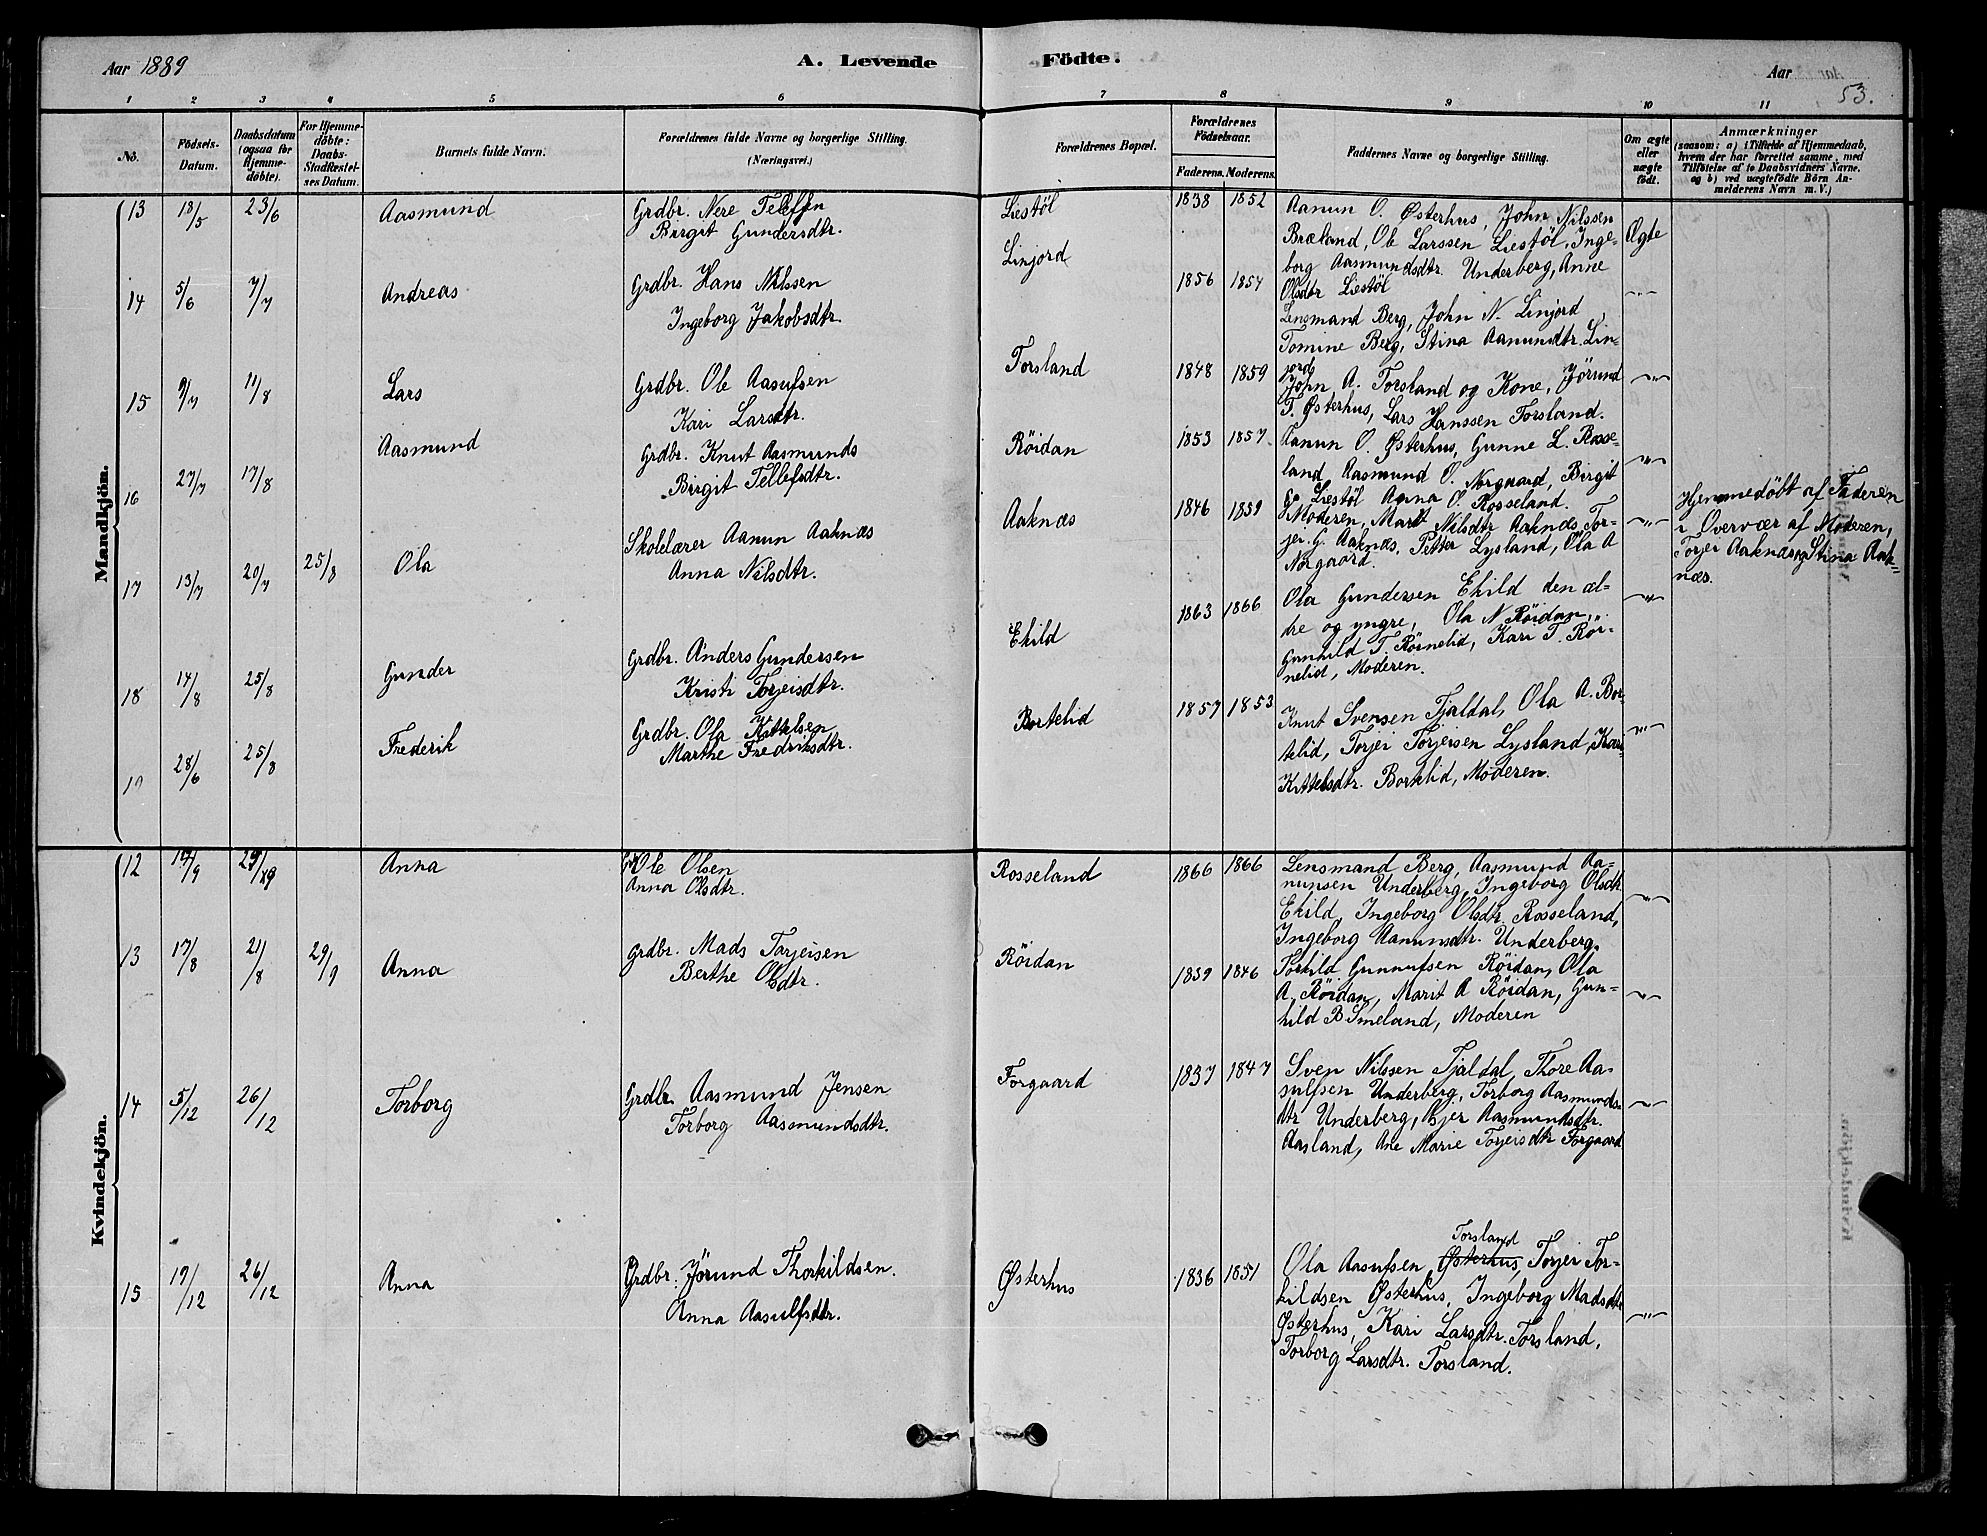 Aar 1889
A. Levende
Födte.
Aar
53.
1 2 3 4 5 6 7 8 9 10 11
No.
Födsels-
Datum.
Daabsdatum
(ogsaa for
Hjemme-
döbte).
For Hjemme-
döbte:
Daabs-
Stadfæstel-
ses Datum.
Barnets fulde Navn.
Forældrenes fulde Navne og borgerlige Stilling.
(Næringsvei.)
Forældrenes Bopæl.
Forældrenes
Födselsaar.
Faderens. Moderens.
Faddernes Navne og borgerlige Stilling.
Om ægte
eller
uægte
födt.
Anmærkninger
(saasom: a) i Tilfælde af Hjemmedaab,
hvem der har forrettet samme, med
Tilföielse af to Daabsvidners Navne,
og b) ved uægtefödte Börn An-
melderens Navn m. V.)
Mandkjön.
13 18/5 23/6 Aasmund
Grdbr. Nere Tellefsen
Birgit Gundersdtr.
Liestöl 1838 1852
Aanun O. Østerhus, John Nilssen
Bræland, Ole Larssen Liestöl, Inge-
borg Aasmundsdtr. Underberg, Anne
Olsdtr Liestöl
Ægte
14 5/6 7/7 Andreas
Grdbr. Hans Nilssen
Ingeborg Jakobsdtr.
Linjord 1856 1854
Lensmand Berg, John N. Linjord
Tomine Berg, Stina Aanundtr. Lin-
jord
-"-
15 9/7 11/8 Lars
Grdbr. Ole Aasufsen
Kari Larsdtr.
Torsland 1848 1859
John A. Torsland og Kone, Jörund
T. Østerhus, Lars Hanssen Torsland.
-"-
16 27/7 17/8 Aasmund
Grdbr. Knut Aasmunds
Birgit Tellefsdtr.
Röidan 1853 1857
Aanun O. Østerhus, Gunne L. Rosse-
land, Aasmund O. Norgaard, Birgit
Liestöl Anna O. Rosseland.
-"-
17 13/7 20/7 25/8 Ola
Skolelærer Aanun Aaknæs
Anna Nilsdtr.
Aaknæs 1846 1859
Moderen, Marit Nilsdtr Aaknæs, Tor-
jer G. Aaknæs, Petter Lysland, Ola A
Norgaard.
-"-
Hjemmedöbt af Faderen
i Overvær af Moderen,
Torjer Aaknæs og Stina Aak-
næs.
18 14/8 25/8 Gunder
Grdbr. Anders Gundersen
Kristi Torjeisdtr.
Ekild 1863 1866
Ola Gundersen Ekild den æl-
dre og yngre, Ola N Röidan,
Gunhild T. Rörnelid, Kari T. Rör-
nelid, Moderen.
-"-
28/6 25/8 Frederik
Grdbr. Ola Kittelsen
Marthe Fredriksdtr.
Bortelid 1857 1853
Knut Svensen Tjaldal, Ola A. Bor-
telid, Torjei Torjersen Lysland, Kari
Kittelsdtr. Bortelid, Moderen.
-"-
Kvindekjön.
12 Anna
Ole Olsen
Anna Olsdtr.
Rosseland 1866 1866
Lensmand Berg, Aasmund Aa-
nunsen Underberg, Ingeborg Olsdtr
Ekild, Ingeborg Olsdtr. Rosseland,
Ingeborg Aanunsdtr. Underberg.
-"-
13 17/8 21/8 29/9 Anna
Grdbr. Mads Torjeisen
Berthe Olsdtr.
Röidan 1839 1846
Torkild Gunnufsen Röidan, Ola
A. Röidan, Marit A Röidan, Gun-
hild B Smeland, Moderen
-"-
14 5/12 26/12 Torborg
Grdbr. Aasmund Jensen
Torborg Aasmundsdtr.
Forgaard 1837 1847
Sven Nilssen Tjaldal, Thore Aa-
sulfsen Underberg, Torborg Aasmunds-
dtr Underberg, Bjer Aasmundsdtr.
Aasland, Ane Marie Torjeisdtr Forgaard
-"-
15 17/12 26/12 Anna
Grdbr. Jörund Thorkildsen.
Anna Aasulfsdtr.
Østerhus 1836 1851
Torsland
Ola Aasufsen Østerhus, Torjei Tor-
kildsen Østerhus, Ingeborg Madsdtr
Østerhus, Kari Larsdtr. Torsland,
Torborg Larsdtr. Torsland.
-"-